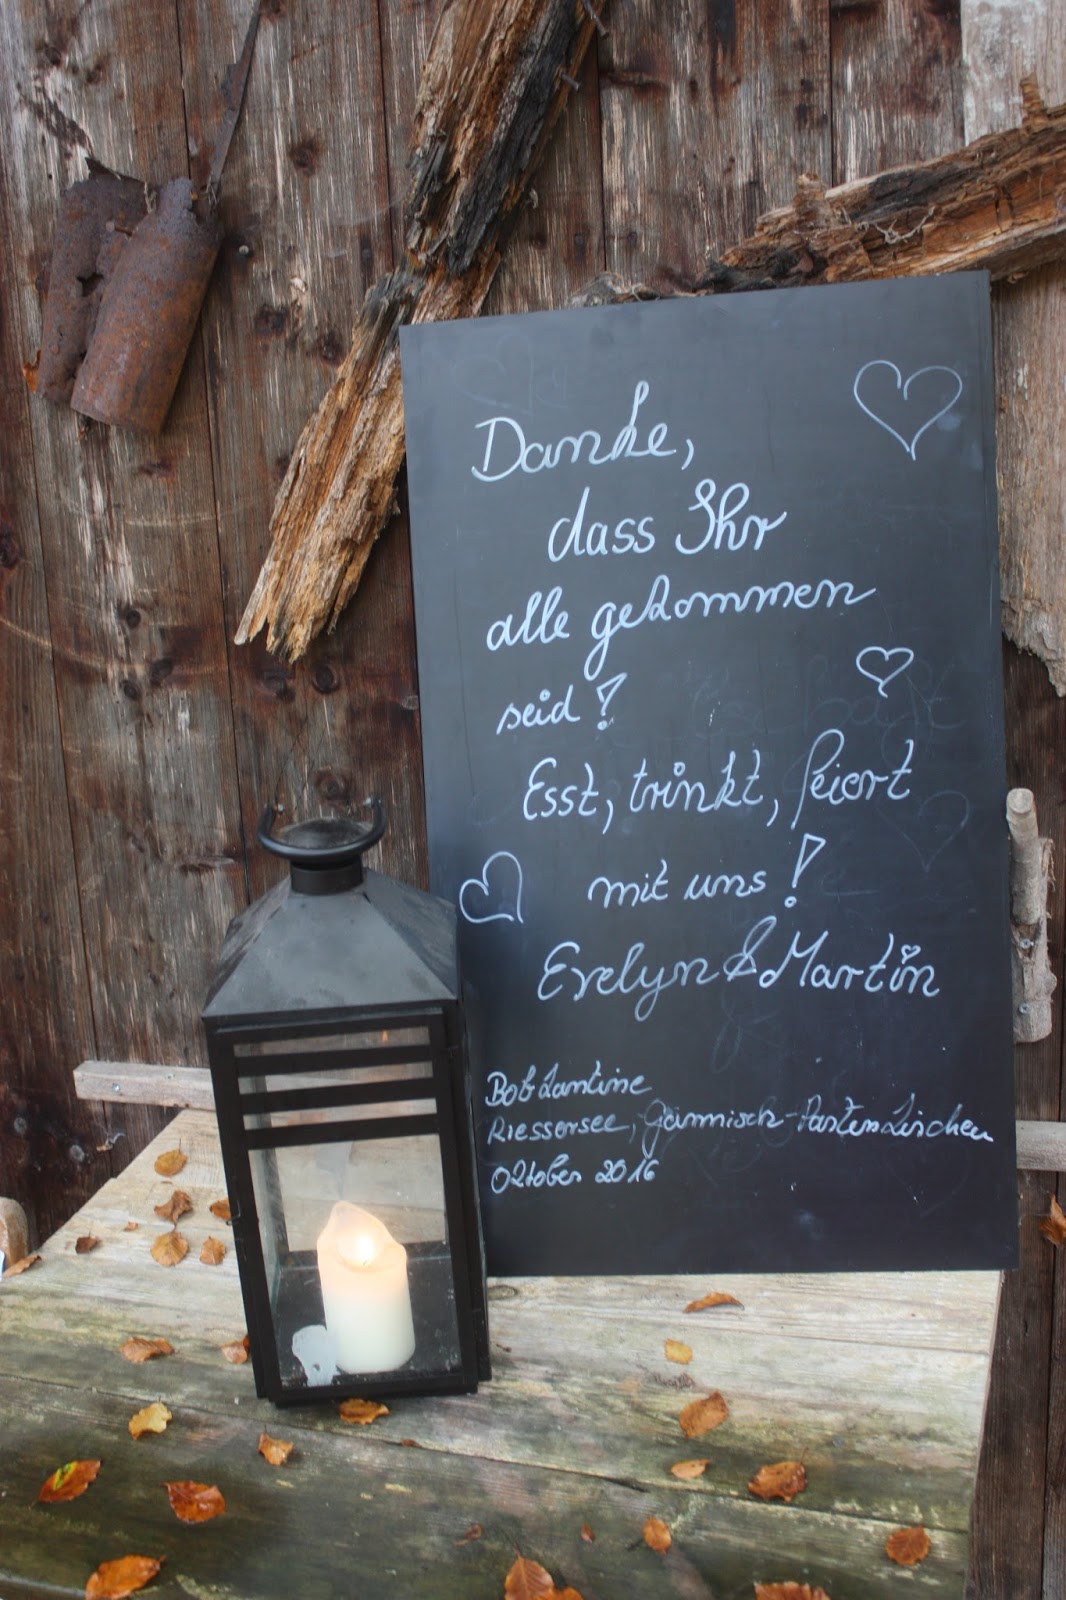 Danke,
dass Ihr
alle gekommen
seid!
Esst, trinkt, feiert
mit uns!
Evelyn & Martin
Bobkantine
Riessersee, Garmisch-Partenkirchen
Oktober 2016